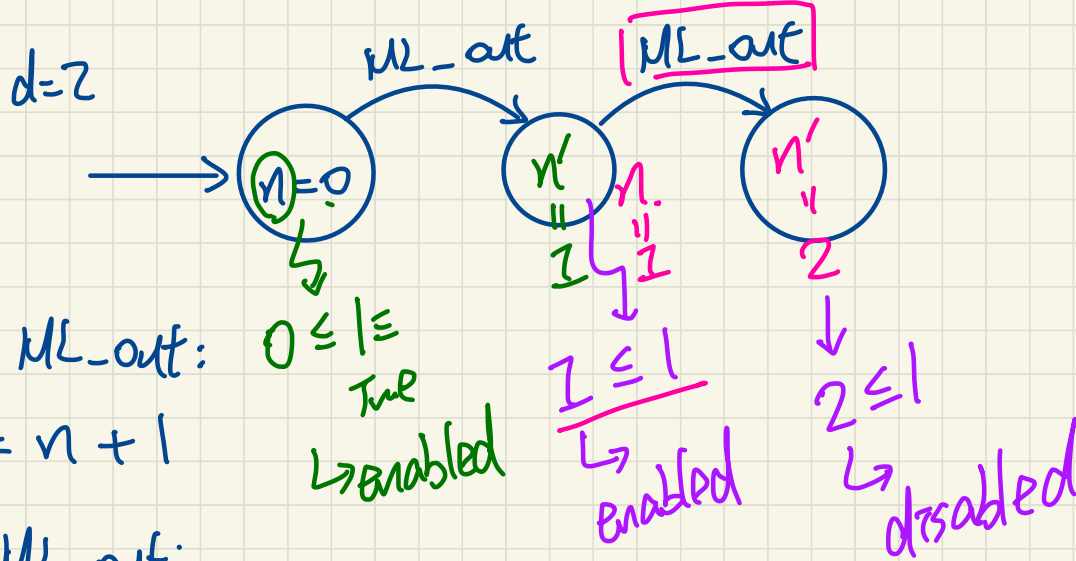 d=2
ML_out
ML_out
n=0
n'
=
1
n
=
1
n'
=
2
0 ≤ 1 ≡
True
↳ enabled
1 ≤ 1
↳ enabled
2 ≤ 1
↳ disabled
ML_out:
= n + 1
ML_out: